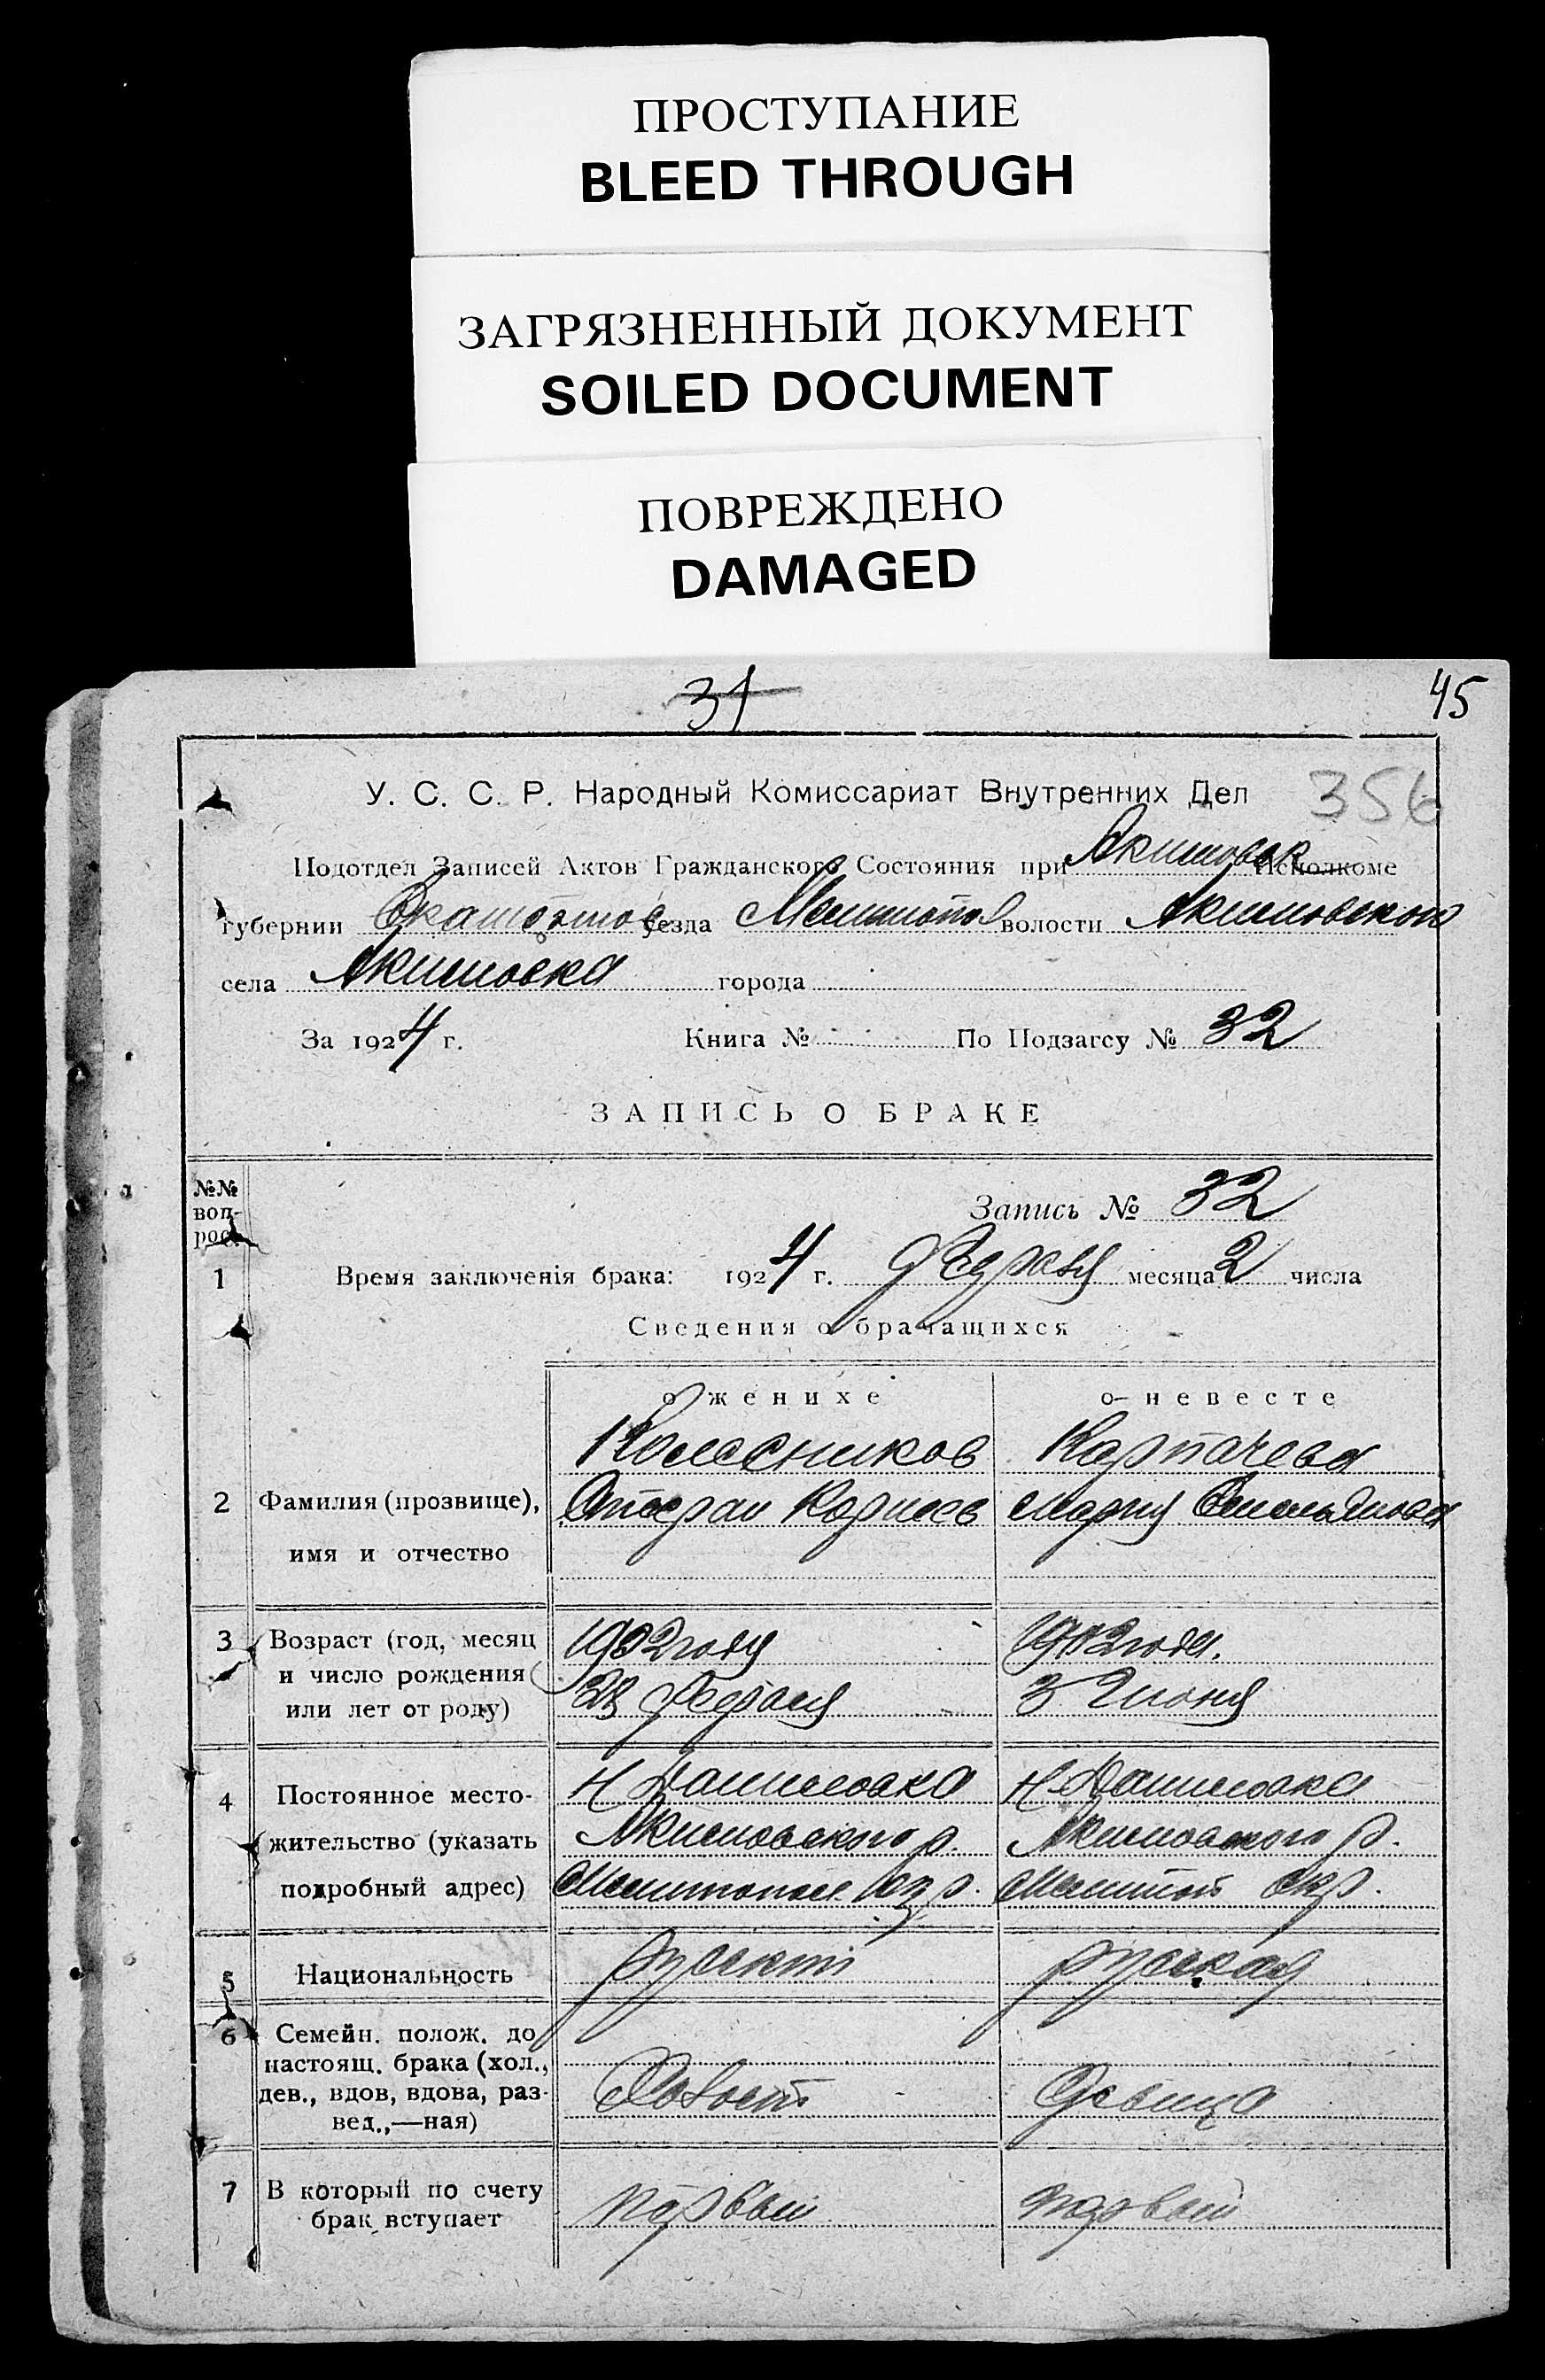 ПРОСТУПАНИЕ
BLEED THROUGH
ЗАГРЯЗНЕННЫЙ ДОКУМЕНТ
SOILED DOCUMENT
ПОВРЕЖДЕНО
DAMAGED
31
45
У. С. С. Р. Народный Комиссариат Внутренних Дел
356
Подотдел Записей Актов Гражданского Состояния при Акимовск Исполкоме
губернии уезда Мелитопол волости Акимовской
села Акимовка города
За 1924 г. Книга № По Подзагсу № 32
ЗАПИСЬ О БРАКЕ
№№ воп-рос.
Запись № 32
1 Время заключенія брака: 1924 г. февраля месяца 2 числа
Сведения о брачащихся
о женихе о невесте
Колесников Карпачева
2 Фамилия (прозвище), Корнеев Мария Емельянова
имя и отчество
1902 года
3 Возраст (год, месяц
и число рождения 28 февраля 3 Июня
или лет от роду)
Н Даниловка Н Даниловка
4 Постоянное место-
жительство (указать Акимовского р. Акимовского р.
подробный адрес) Мелитопол Окр. Мелитоп Окр.
5 Национальность русский русская
6 Семейн. полож. до
настоящ. брака (хол.,
дев., вдов, вдова, раз- Холост девица
вед.,—ная)
7 В который по счету первый первый
брак вступает